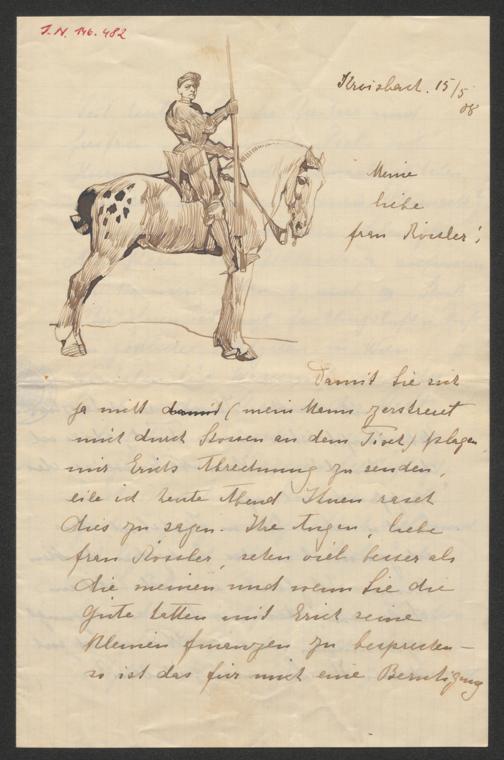 J.N. 146.482
Kroisbach. 15/5
08
Meine
liebe
frau Rössler!
Damit Sie sich
ja nicht damit (mein Mann zerstreut
mich durch Stossen an dem Tisch) plagen,
mir Erichs Abrechnung zu senden,
eile ich heute Abend Ihnen rasch
dies zu sagen. Ihre Augen, liebe
frau Rössler, sehen viel besser als
die meinen und wenn Sie die
Güte hatten mit Erich seine
kleinen finanzen zu besprechen –
so ist das für mich eine Beruhigung